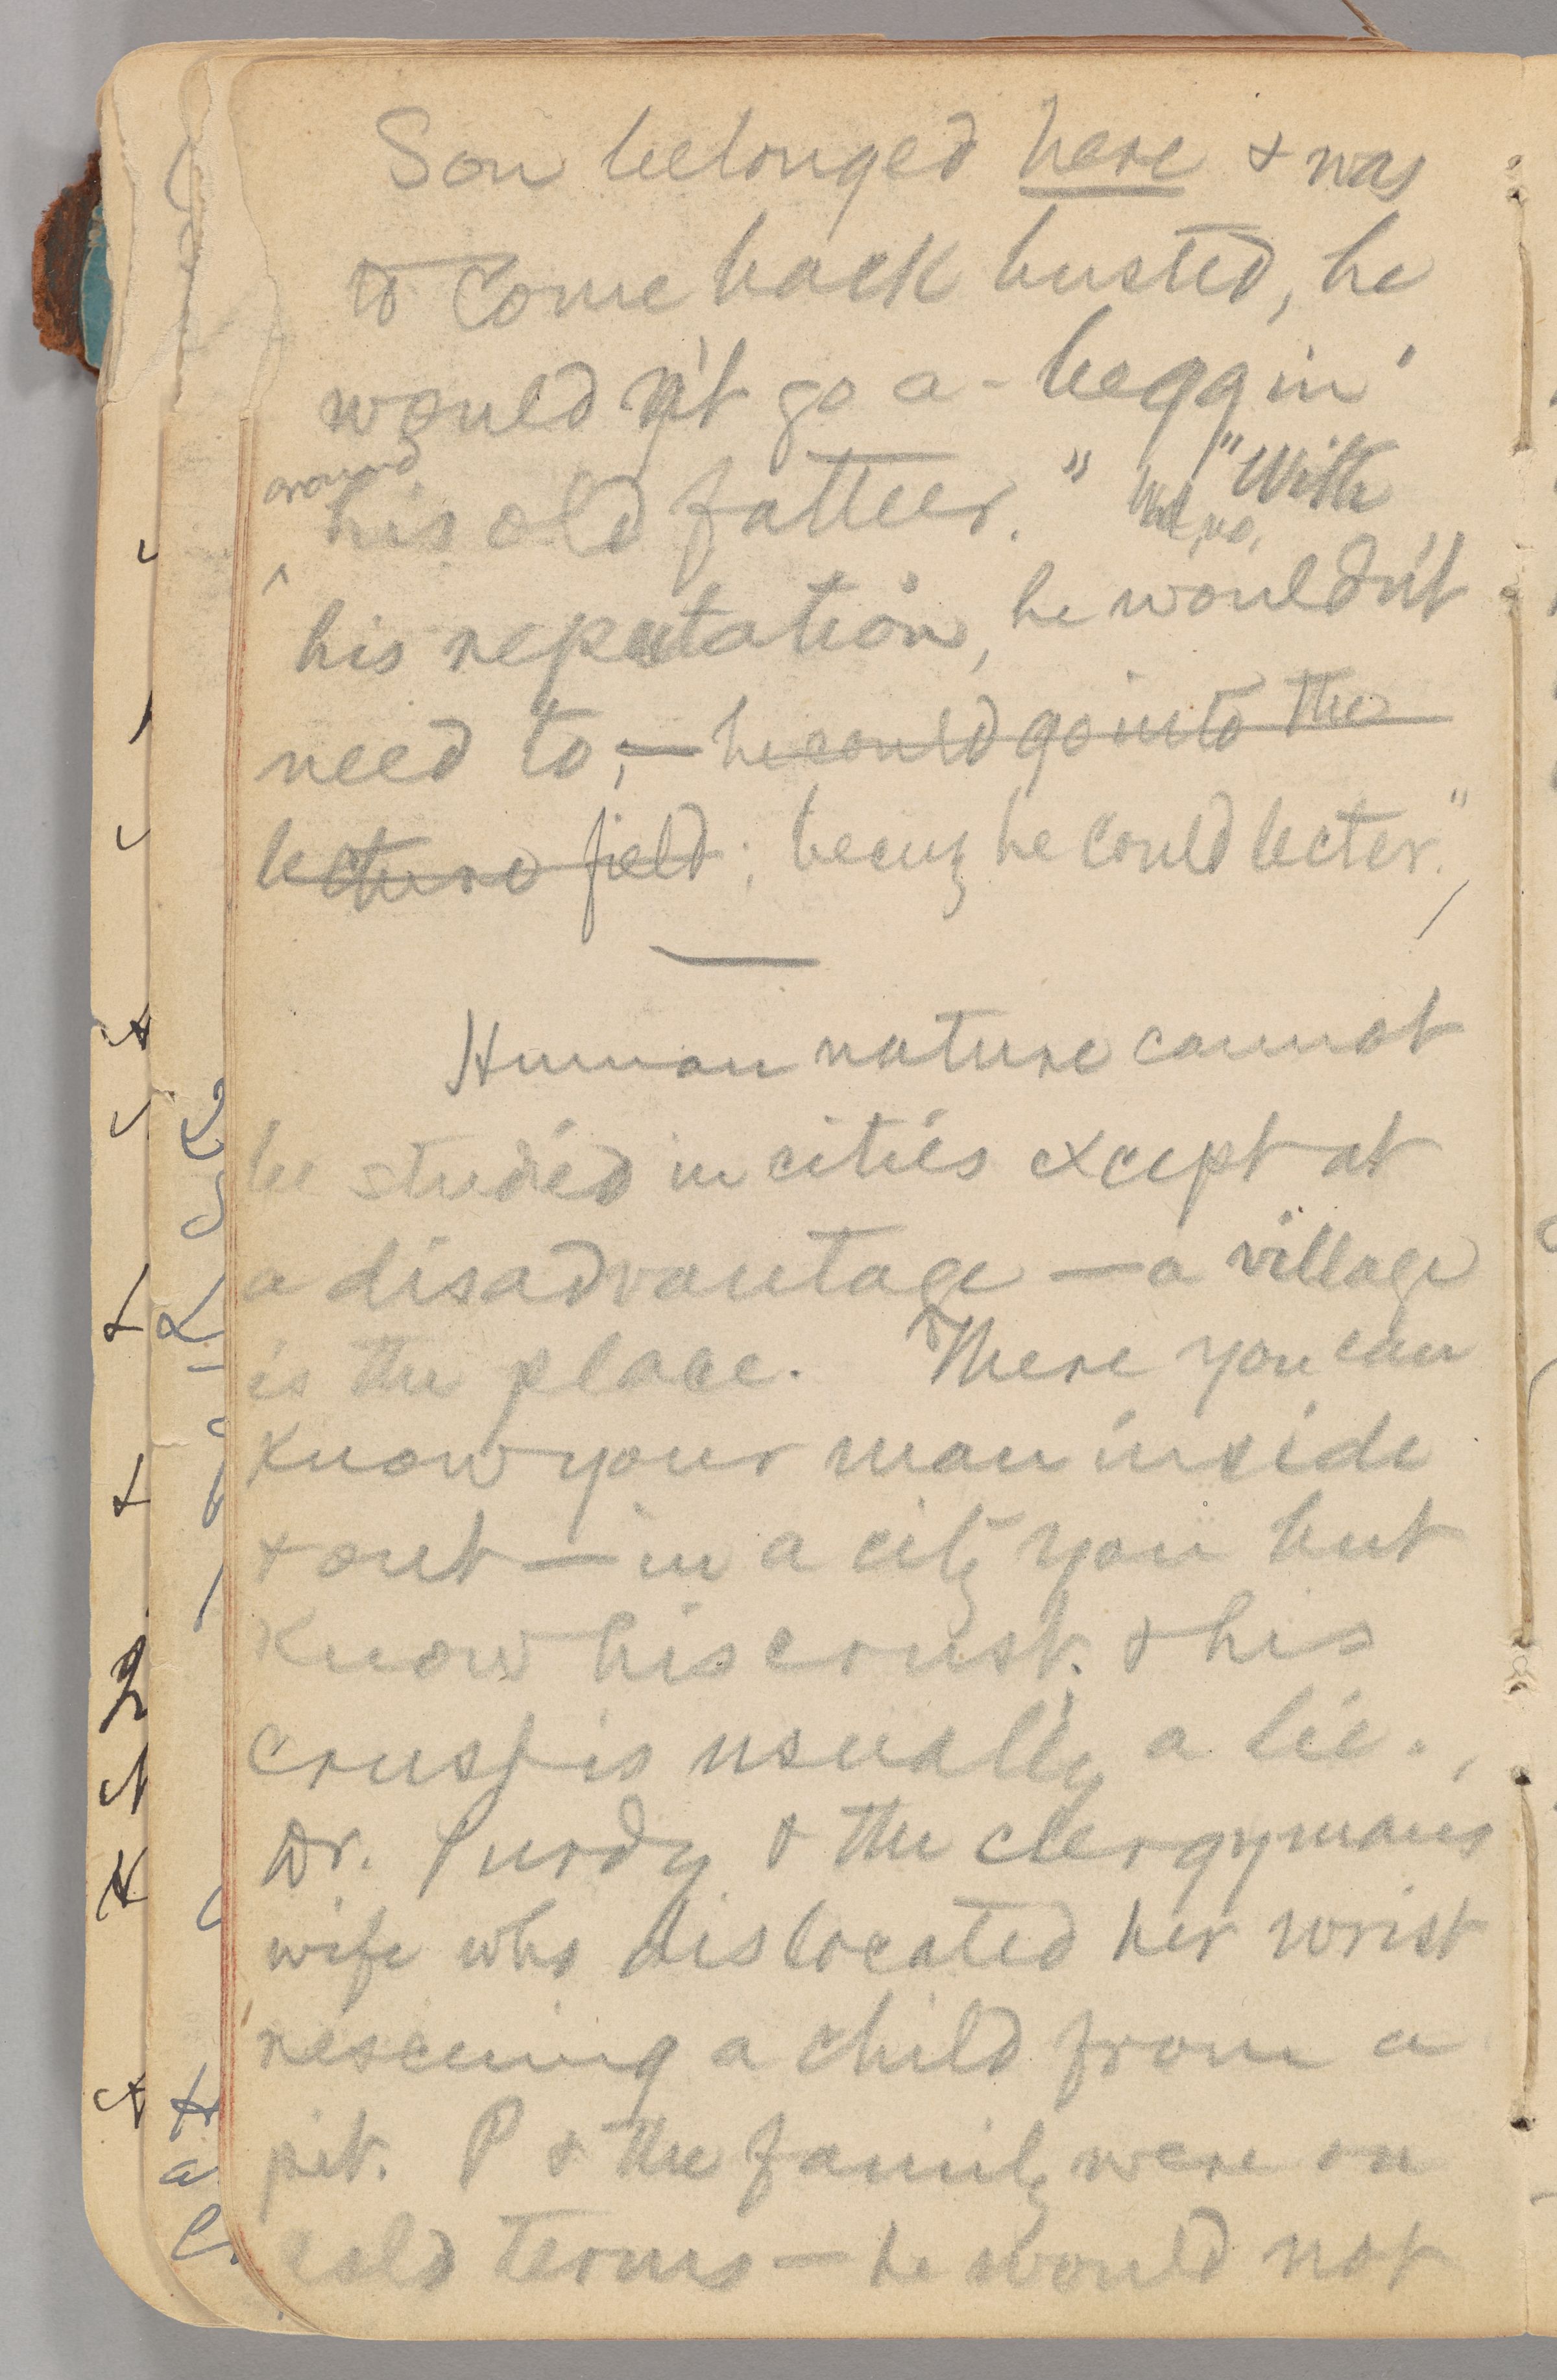 Son belonged here & was
to come back busted, he
would n't go a-beggin'
around
his old father." "With
Well, no,
his reputation, he wouldn't
need to, — he could go into the
lecture field; becuz he could lecter."
Human nature cannot
be studied in cities except at
a disadvantage — a village
is the place. There you can
know your man inside
& out — in a city you but
know his crust; & his
crust is usually a lie.
Dr. Purdy & the clergymans
wife who dislocated her wrist
rescuing a child from a
pit. P & the family were on
cold terms — he would not